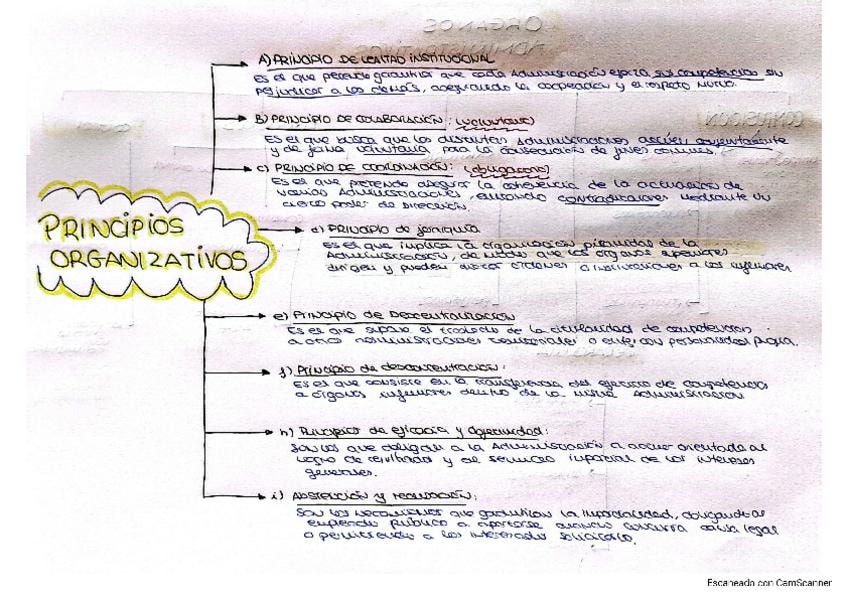 A) PRINCIPIO DE LEALTAD INSTITUCIONAL
Es el que pretende garantizar que cada Administración ejerza sus competencias sin
perjudicar a las demás, asegurando la cooperación y el respeto mutuo.
B) PRINCIPIO DE COLABORACIÓN: (voluntario)
Es el que busca que las distintas Administraciones actúen conjuntamente
y de forma voluntaria para la consecución de fines comunes.
C) PRINCIPIO DE COORDINACIÓN: (obligatorio)
Es el que pretende asegurar la coherencia de la actuación de
varias Administraciones, evitando contradicciones mediante un
cierto poder de dirección.
PRINCIPIOS
ORGANIZATIVOS
d) PRINCIPIO de jerarquía
Es el que implica la organización piramidal de la
Administración, de modo que los órganos superiores
dirigen y pueden dictar órdenes o instrucciones a los inferiores
e) Principio de Descentralización
Es el que supone el traslado de la titularidad de competencias
a otras administraciones territoriales o entes con personalidad propia.
f) Principio de desconcentración:
Es el que consiste en la transferencia del ejercicio de competencias
a órganos inferiores dentro de la misma Administración
h) Principios de eficacia y objetividad:
Son los que obligan a la Administración a actuar orientada al
logro de resultados y al servicio imparcial de los intereses
generales.
i) Abstención y recusación:
Son los mecanismos que garantizan la imparcialidad, obligando al
empleado público a apartarse cuando concurra causa legal
o permitiendo a los interesados solicitarlo.
Escaneado con CamScanner